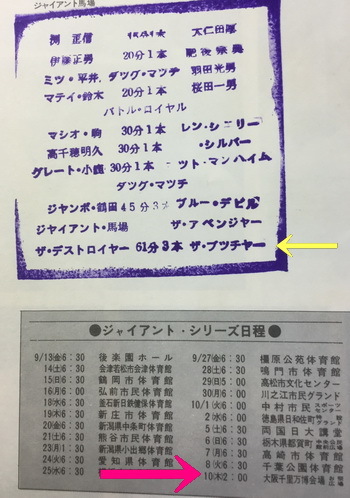 ジャイアント馬場
渕 正信 15分1本 大仁田厚
伊藤正男 20分1本 肥後宗典
ミツ・平井、ダッグ・マッチ 羽田光男
マティ・鈴木 20分1本 桜田一男
バトル・ロイヤル
マシオ・駒 30分1本 レン・シェリー
高千穂明久 30分1本 ・シルバー
グレート・小鹿 30分1本 ット・マンハイム
ダッグ・マッチ
ジャンボ・鶴田 45分3本 ブルー・デビル
ジャイアント・馬場 ザ・アベンジャー
ザ・デストロイヤー 61分3本 ザ・ブッチャー
●ジャイアント・シリーズ日程●
9/13㊎6:30 後楽園ホール
14㊏6:30 会津若松市会津体育館
15㊐6:30 鶴岡市体育館
16㊊6:30 弘前市民体育館
18㊌6:30 釜石新日鉄健保体育館
19㊍6:30 新庄市体育館
20㊎6:30 新潟県中条町体育館
21㊏6:30 熊谷市民体育館
23㊊1:30 新潟県小出郷体育館
24㊋ 愛知県体育館
25㊌6:30
9/27㊎6:30 橿原公苑体育館
28㊏6:30 鳴門市体育館
29㊐5:00 高松市文化センター
30㊊6:30 川之江市民グランド
10/1㊋6:30 中村市民スポーツセンター
2㊌6:00 徳島県日和佐町
5㊏6:30 両国日大講堂
6㊐6:30 栃木県都賀町
7㊊6:30 高崎市体育館
8㊋6:30 千葉公園体育館
10㊍2:00 大阪千里万博会場